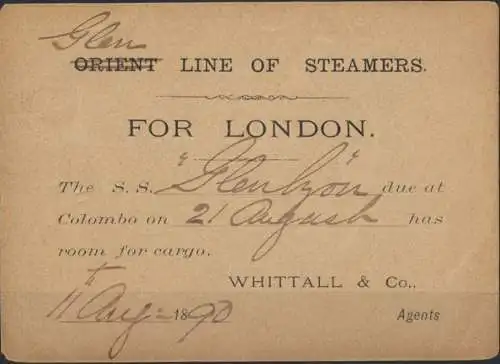 Glen
ORIENT LINE OF STEAMERS.
FOR LONDON.
The S. S. "Glenlyon" due at
Colombo on 21 August has
room for cargo.
WHITTALL & Co.,
11th Aug: 1890 Agents